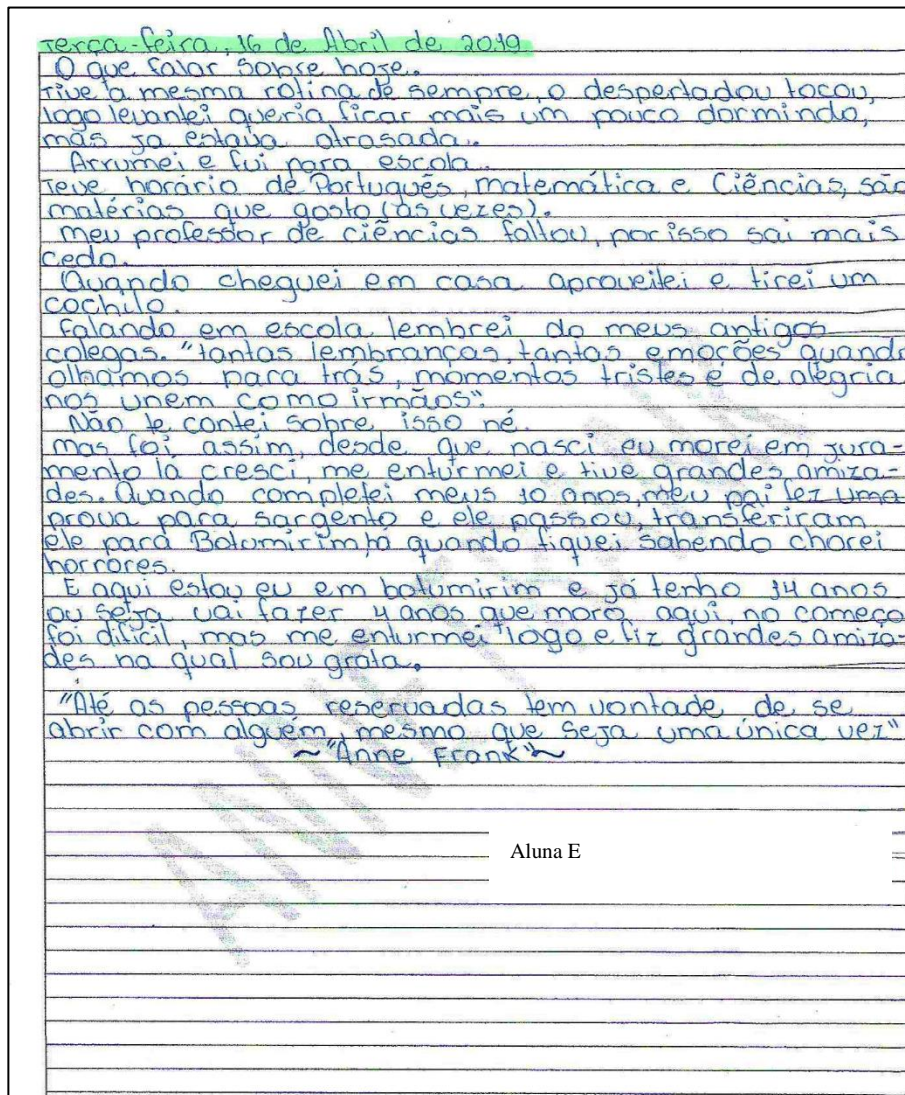 Terça-feira, 16 de Abril de 2019
O que falar sobre hoje.
Tive a mesma rotina de sempre, o despertadou tocou,
logo levantei queria ficar mais um pouco dormindo,
mas ja estava atrasada.
Arrumei e fui para escola.
Teve horário de Português, matemática e Ciências, são
matérias que gosto (às vezes).
Meu professor de ciências faltou, por isso sai mais
cedo.
Quando cheguei em casa aproveitei e tirei um
cochilo.
Falando em escola lembrei do meus antigos
colegas. "tantas lembranças, tantas emoções quando
olhamos para trás, momentos tristes e de alegria
nos unem como irmãos".
Não te contei sobre isso né.
Mas foi assim, desde que nasci eu morei em jura-
mento lá cresci, me enturmei e tive grandes amiza-
des. Quando completei meus 10 anos, meu pai fez uma
prova para sargento e ele passou, transferiram
ele para Botumirim, quando fiquei sabendo chorei
horrores.
E aqui estou eu em botumirim e já tenho 14 anos
ou seja vai fazer 4 anos que moro aqui, no começo
foi dificil, mas me enturmei logo e fiz grandes amiza-
des na qual sou grata.
"Até as pessoas reservadas tem vontade de se
abrir com alguém, mesmo que seja uma única vez"
~"Anne Frank"~
Aluna E